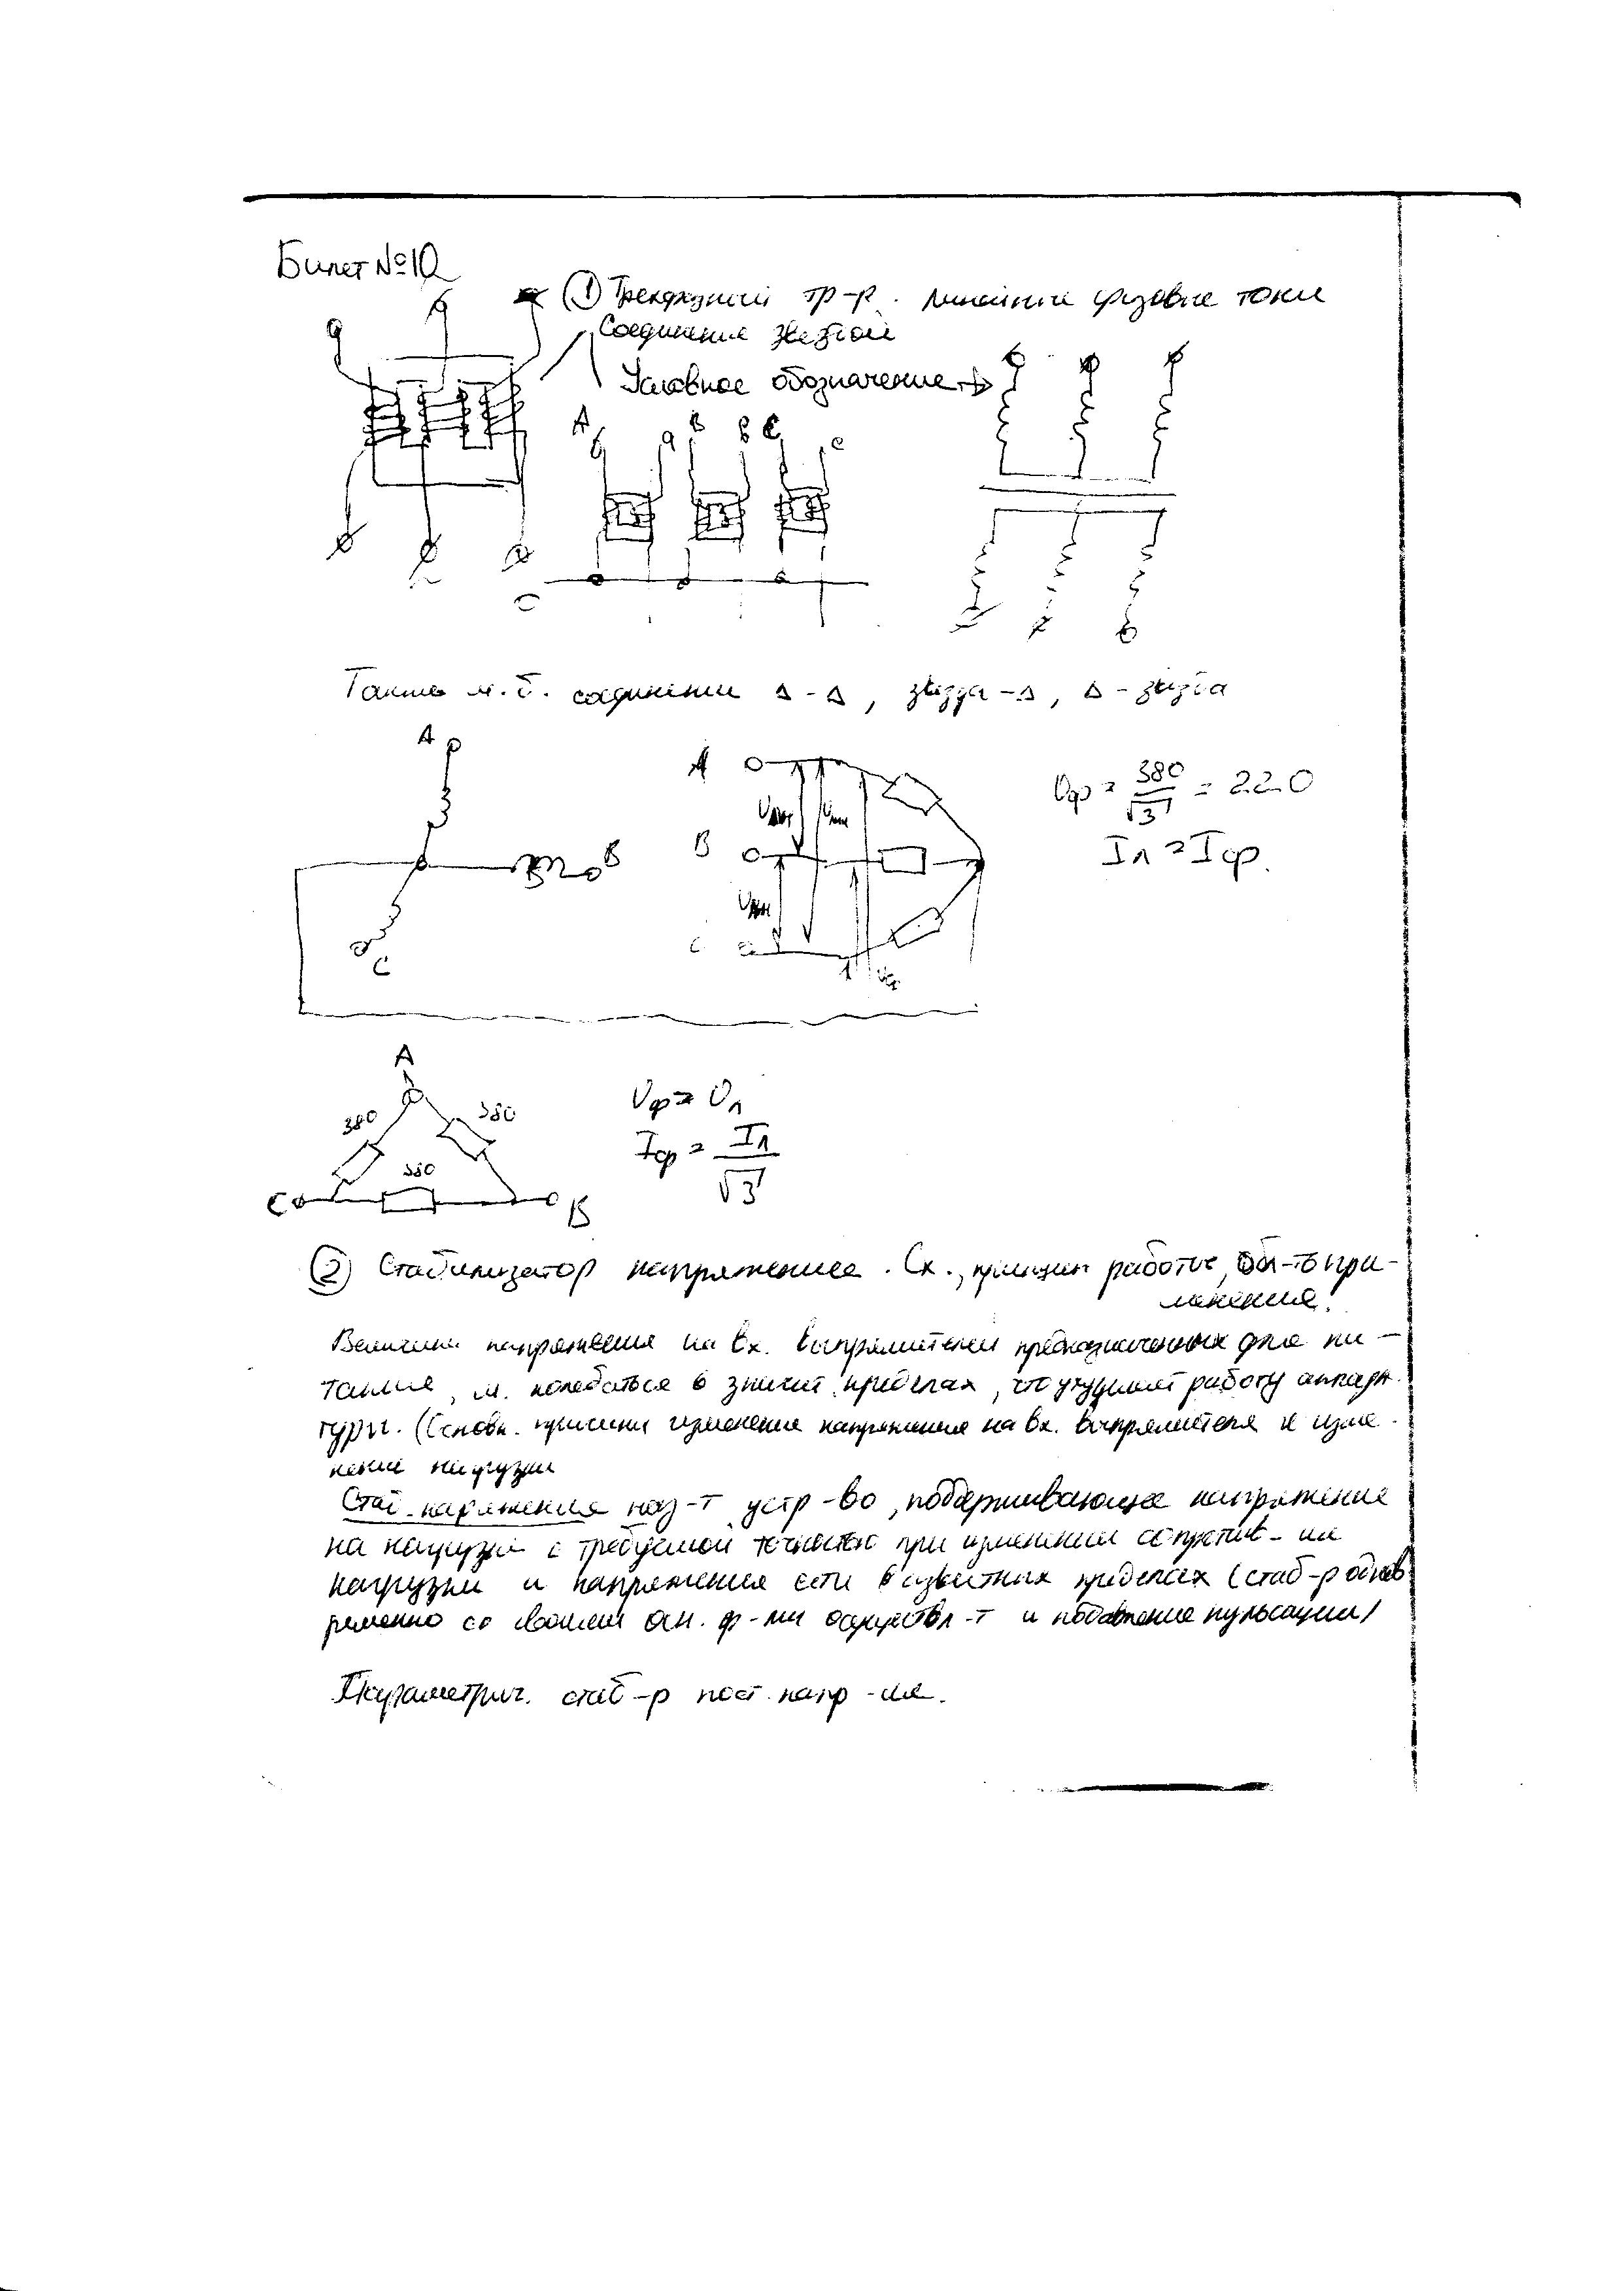 Билет №10
① Трехфазный тр-р. линейные фазовые токи
Соединение звездой
Условное обозначение
A a B b C c
C
Также м.б. соединены Δ-Δ, звезда-Δ, Δ-звезда
A
B
C
A
B
C
Uф = 380/√3 = 220
Iл = Iф.
A
380 380
380
C B
Uф = Uл
Iф = Iл/√3
② Стабилизатор напряжения. Сх., принцип работы, обл-ть при-
менения.
Величина напряжения на вх. выпрямителей предназначенных для пи-
тания, м. колебаться в значит. пределах, что ухудшает работу аппара-
туры. (Основн. причины изменение напряжения на вх. выпрямителя и изме-
нений нагрузки
Стаб. напряжения наз-т устр-во, поддерживающее напряжение
на нагрузке с требуемой точностью при изменении сопротив-ия
нагрузки и напряжения сети в известных пределах (стаб-р однов
ременно со своими осн. ф-ми осуществл-т и подавление пульсации)
Параметрич. стаб-р пост. напр-ия.